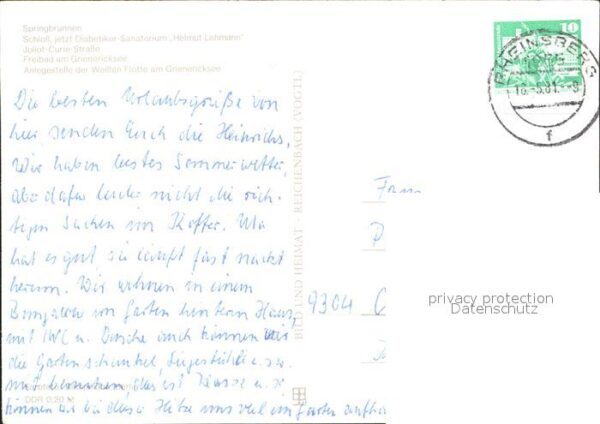 Springbrunnen
Schloß, jetzt Diabetiker-Sanatorium „Helmut Lehmann"
Joliot-Curie-Straße
Freibad am Grienericksee
Anlegestelle der Weißen Flotte am Grienericksee
Die besten Urlaubsgrüße von
hier senden Euch die Heinrichs,
Wir haben bestes Sommerwetter,
aber dafür leider nicht die rich-
tigen Sachen im Koffer.
hat es gut sie läuft fast nackt
herum. Wir wohnen in einem
Bungalow im Garten hinterm Haus,
mit WC u. Dusche auch können wir
die Gartenschaukel, Liegestühle u.s.w.
mit benutzen, das ist Klasse u. so
können wir bei dieser Hitze uns viel im Garten
DDR 0,20 M
BILD UND HEIMAT · REICHENBACH (VOGTL)
10
RHEINSBERG
f
Frau
9304
privacy protection
Datenschutz